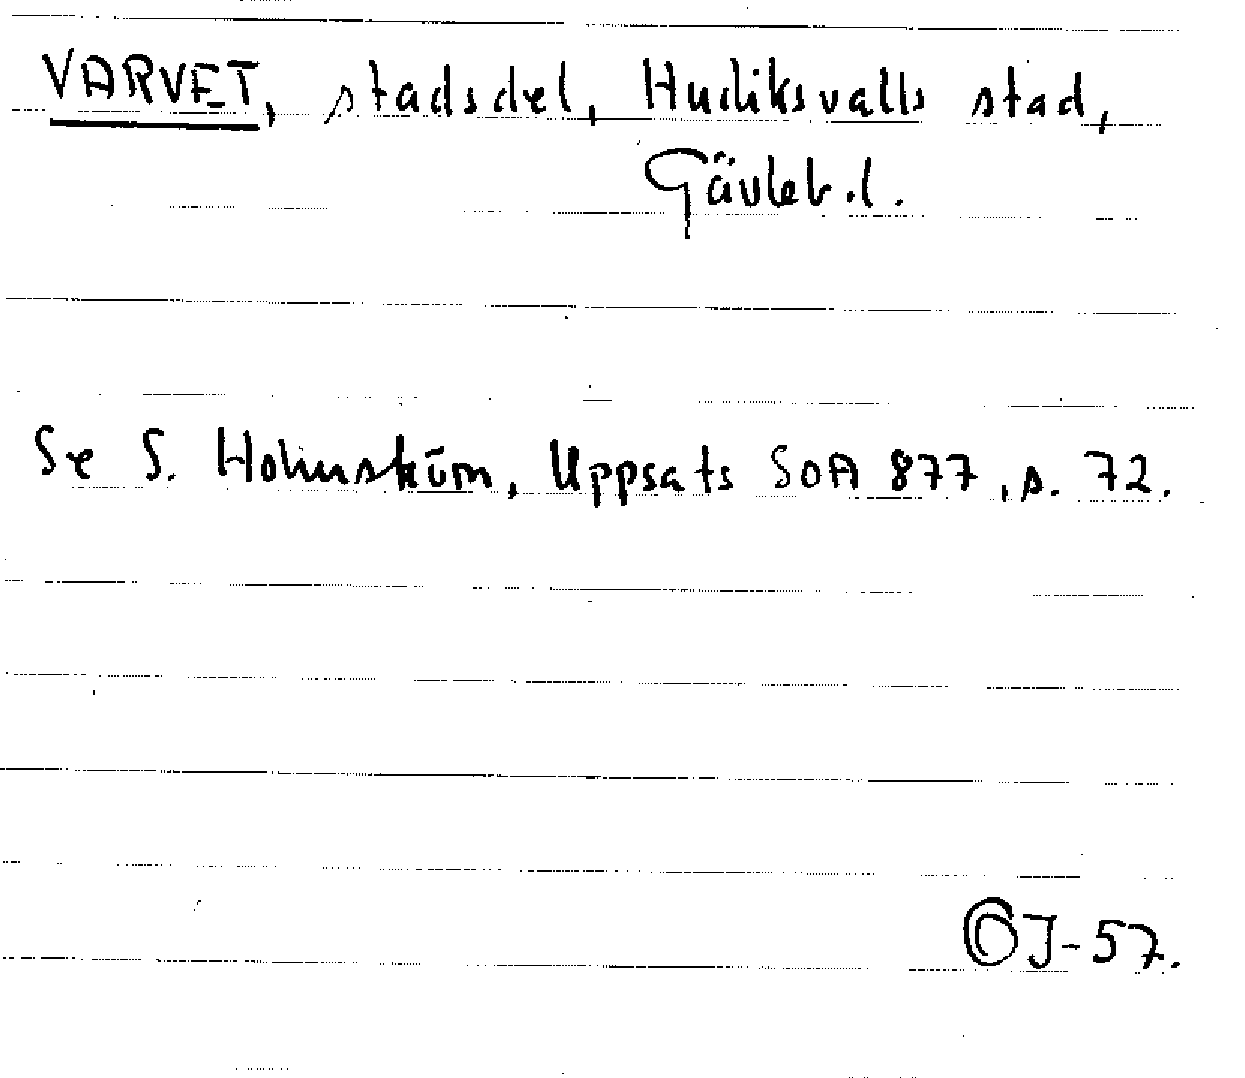 VARVET, stadsdel, Hudiksvalls stad,
Gävleb.l.
Se S. Holmström, Uppsats SOA 877, s. 72.
OJ-57.